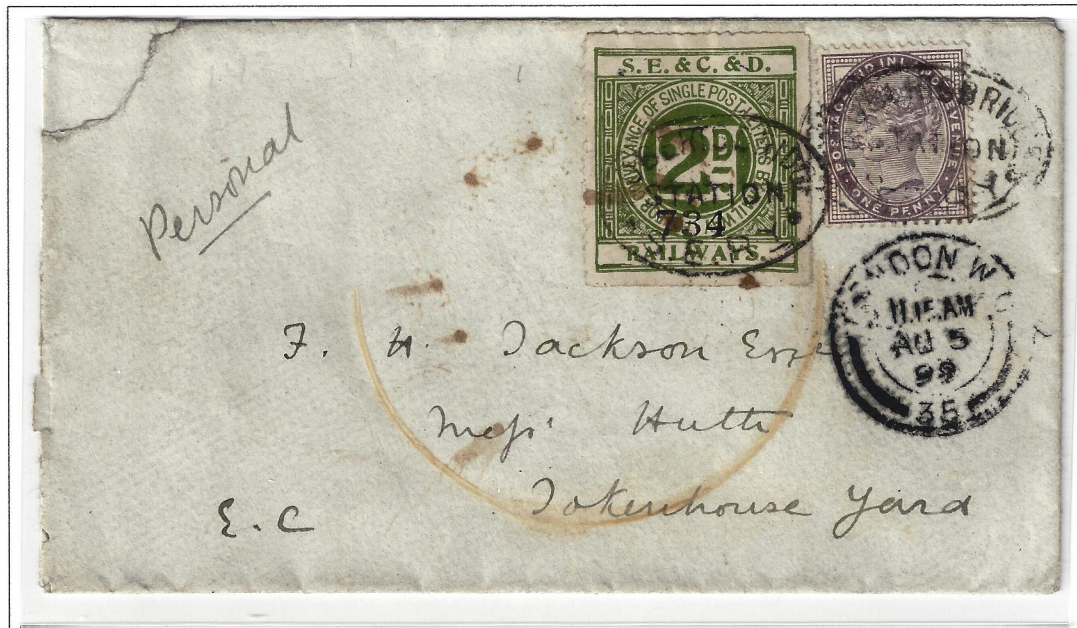 S. E. & C. & D.
FOR CONVEYANCE OF SINGLE POST LETTERS BY RAILWAY
2D
734
RAILWAYS.
STATION
S.E.R.
POSTAGE AND INLAND REVENUE
ONE PENNY
BRIDGE
STATION
LONDON W.C
11.15 AM
AU 5
99
35
Personal
F. H. Jackson Esqe
Messrs Huth
Tokenhouse Yard
E.C